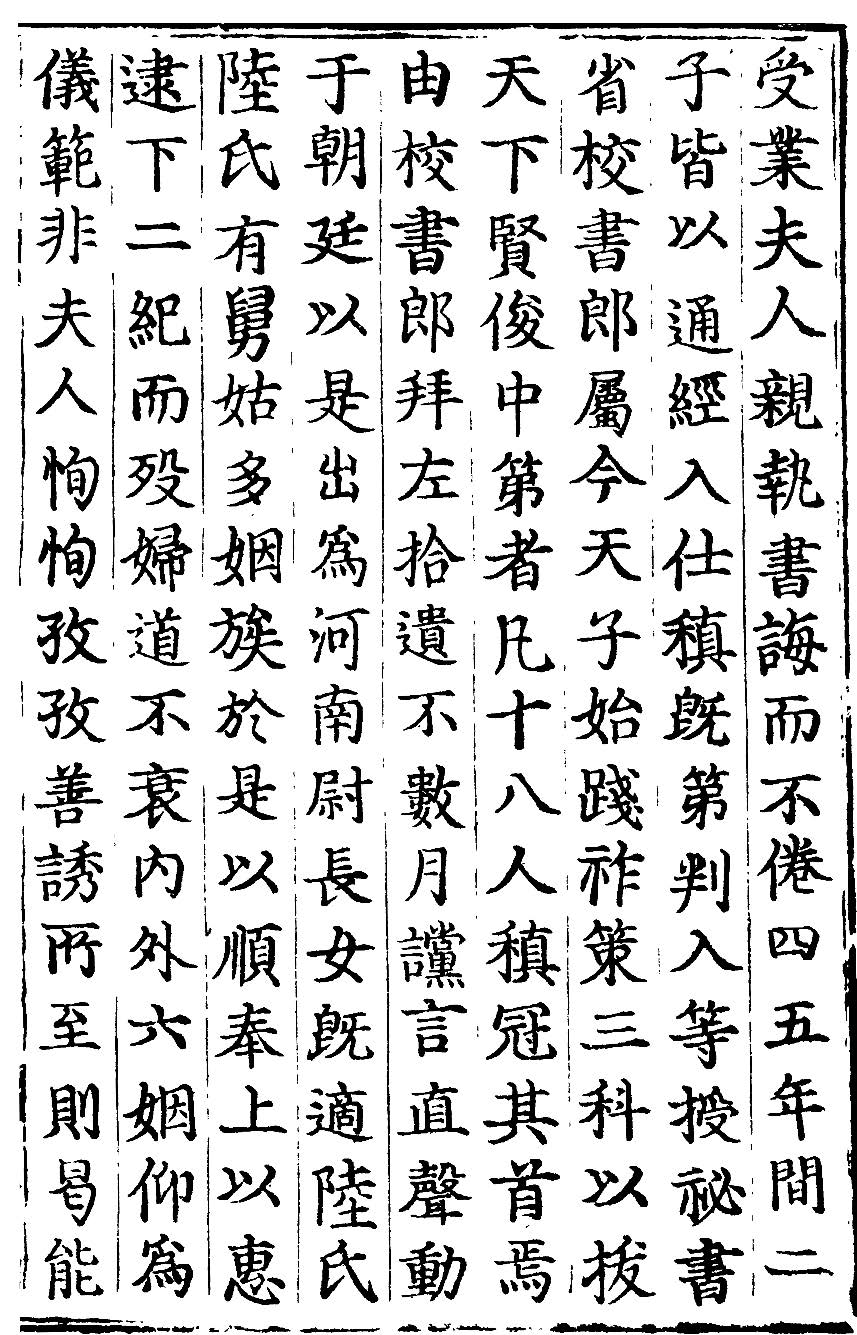 受業夫人親執書誨而不倦四五年間二
子皆以通經入仕稹旣第判入等授祕書
省校書郎屬今天子始踐祚策三科以拔
天下賢俊中第者凡十八人稹冠其首焉
由校書郎拜左拾遺不數月讜言直聲動
于朝廷以是出爲河南尉長女旣適陸氏
陸氏有舅姑多姻族於是以順奉上以惠
逮下二紀而歿婦道不衰內外六姻仰爲
儀範非夫人恂恂孜孜善誘所至則曷能